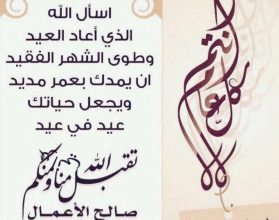 اسأل الله
الذي أعاد العيد
وطوى الشهر الفقيد
ان يمدك بعمر مديد
ويجعل حياتك
عيد في عيد
تقبل الله
منا ومنكم
صالح الأعمال
كل عام
وانتم